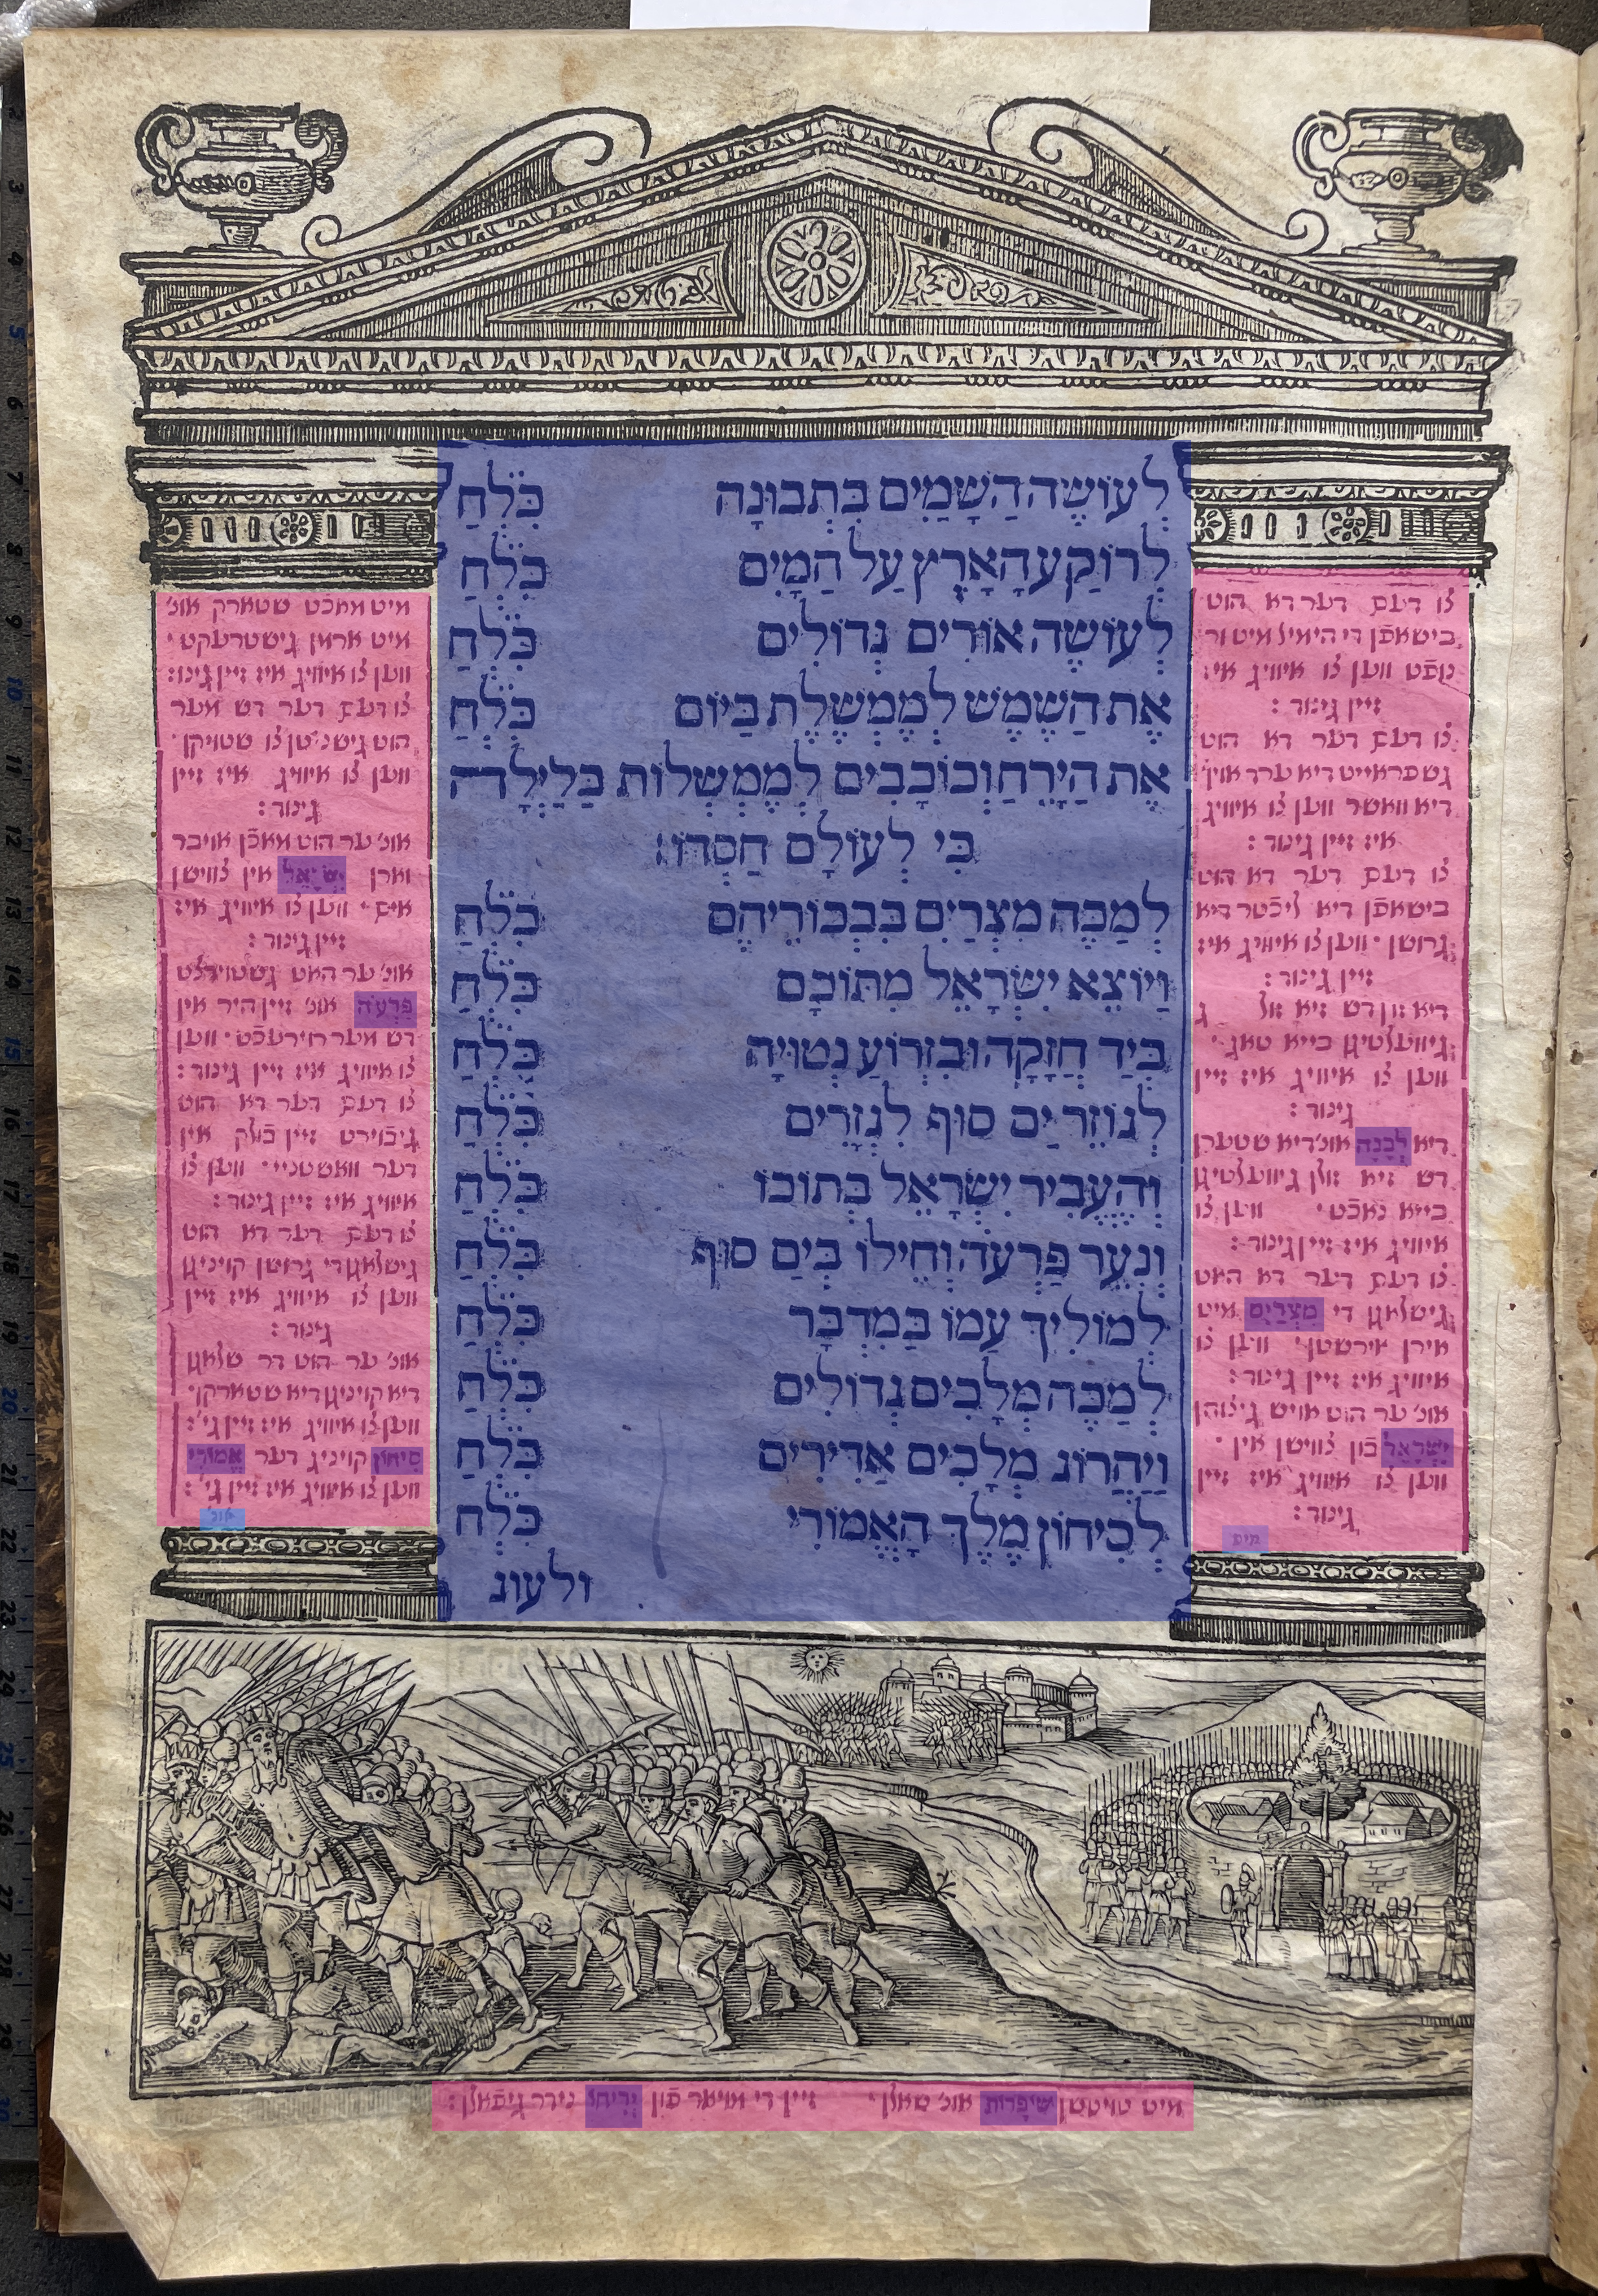 לְעוֹשֶׂה הַשָּׁמַיִם בִּתְבוּנָה כִּלְּחַ
לְרוֹקַע הָאָרֶץ עַל הַמָּיִם כִּלְּחַ
לְעוֹשֶׂה אוֹרִים גְּדוֹלִים כִּלְּחַ
אֶת הַשֶּׁמֶשׁ לְמֶמְשֶׁלֶת בַּיּוֹם כִּלְּחַ
אֶת הַיָּרֵחַ וְכוֹכָבִים לְמֶמְשְׁלוֹת בַּלַּיְלָה
כִּי לְעוֹלָם חַסְדּוֹ:
לְמַכֵּה מִצְרַיִם בִּבְכוֹרֵיהֶם כִּלְּחַ
וַיּוֹצֵא יִשְׂרָאֵל מִתּוֹכָם כִּלְּחַ
בְּיַד חֲזָקָה וּבִזְרוֹעַ נְטוּיָה כִּלְּחַ
לְגוֹזֵר יַם סוּף לִגְזָרִים כִּלְּחַ
וְהֶעֱבִיר יִשְׂרָאֵל בְּתוֹכוֹ כִּלְּחַ
וְנִעֵר פַּרְעֹה וְחֵילוֹ בְיַם סוּף כִּלְּחַ
לְמוֹלִיךְ עַמּוֹ בַּמִּדְבָּר כִּלְּחַ
לְמַכֵּה מְלָכִים גְּדוֹלִים כִּלְּחַ
וַיַּהֲרוֹג מְלָכִים אַדִּירִים כִּלְּחַ
לְסִיחוֹן מֶלֶךְ הָאֱמוֹרִי כִּלְּחַ
ולעוג
צו דעם דער דא הוט
בישאפֿן די הימיל מיט ור
נופֿט ווען צו איוויג איז
זיין גינוד :
צו דעם דער דא הוט
גשפראייט דיא ערד אויף
דיא וואשר ווען צו איוויג
איז זיין גינוד :
צו דעם דער דא הוט
בישאפֿן דיא ליכֿטר דיא
גרושן ׳ ווען צו איוויג איז
זיין גינוד :
דיא זון דש זיא זול ג
גיוועלטיגן בייא טאג ׳
ווען צו איוויג איז זיין
גינוד :
דיא לְבָנָה אונ׳ דיא שטערן
דש זיא זולן גיוועלטיגן
בייא נאכֿט ׳ ווען צו
איוויג איז זיין גינוד :
צו דעם דער דא האט
גישלאגן די מִצְרַיִם מיט
אירן אירשטן ׳ ווען צו
איוויג איז זיין גינוד :
אונ׳ ער הוט אויש גיצוהן
יִשְׂרָאֵל פֿון צווישן אין ׳
ווען צו איוויג איז זיין
גינוד :
מיט
מיט מאכֿט שטארק אונ׳
מיט ארמן גישטרעקט ׳
ווען צו איוויג איז זיין גינוד :
צו דעם דער דש מער
הוט גישניטן צו שטויקן ׳
ווען צו איוויג איז זיין
גינוד :
אונ׳ ער הוט מאכֿן אויבר
ווארן יִשְׂרָאֵל אין צווישן
אים ׳ ווען צו איוויג איז
זיין גינוד :
אונ׳ ער האט גשטוירצט
פַּרְעֹה אונ׳ זיין היר אין
דש מער ׳ ווען
צו איוויג איז זיין גינוד :
צו דעם דער דא הוט
גיפֿוירט זיין פֿולק אין
דער וואושטניי ׳ ווען צו
איוויג איז זיין גינוד :
צו דעם דער דא הוט
גישלאגן די גרושן קויניגן
ווען צו איוויג איז זיין
גינוד :
אונ׳ ער הוט דר שלאגן
דיא קויניגן דיא שטארקן ׳
ווען צו איוויג איז זיין גי׳ :
סִיחוֹן קויניג דער אֱמוֹרִי
ווען צו איוויג איז זיין גי׳ :
אונ׳
מיט טויטשן שׁוֹפָרוֹת אונ׳ שאלן ׳ זיין די מויאר פֿון יְרִיחוֹ נידר גיפֿאלן :